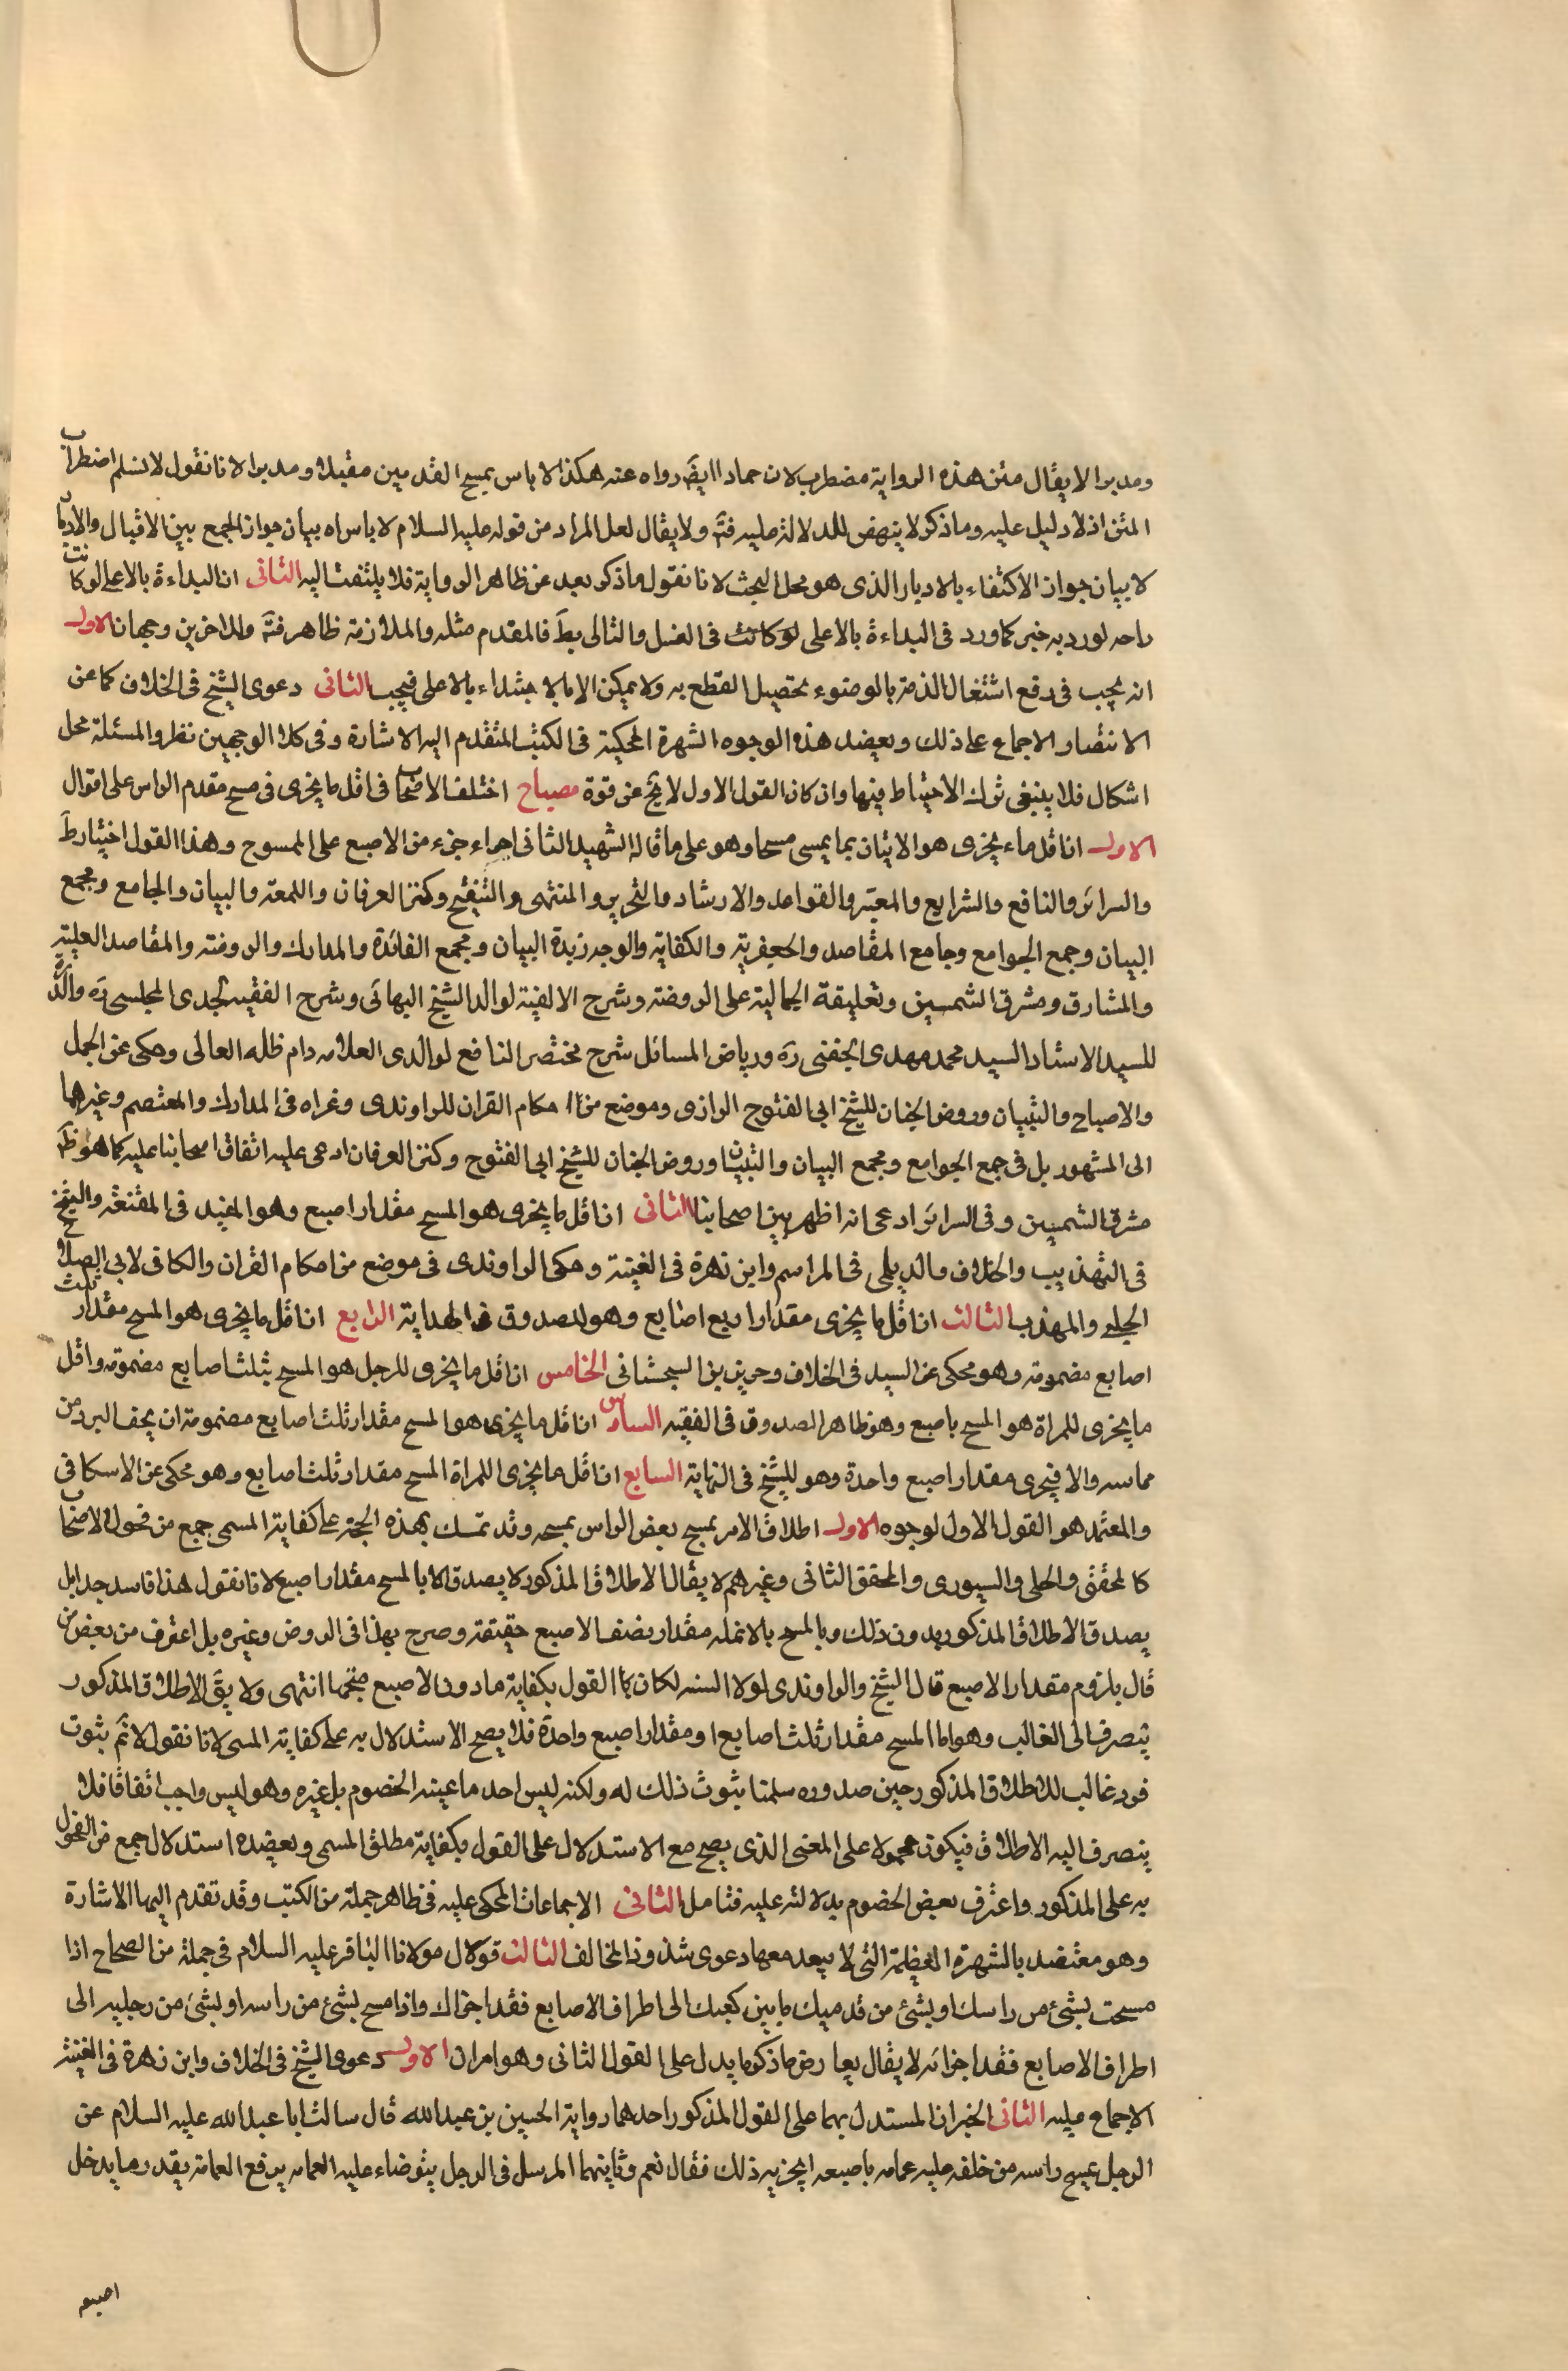 ومدبرا لا يقال متن هذه الرواية مضطرب لان حمادا ايضَ رواه عنه هكذا لا باس بمسح القدمين مقبلا ومدبرا لانا نقول لا نسلم اضطراب
المتن اذ لا دليل عليه وما ذكر لا ينهض للدلالة عليه فتَم ولا يقال لعل المراد من قوله عليه السلام لا باس اه بيان جواز الجمع بين الاقبال والادبار
لا بيان جواز الاكتفاء بالادبار الذى هو محل البحث لانا نقول ما ذكر بعيد عن ظاهر الرواية فلا يلتفت اليه الثانى ان البداءة بالاعلى لو كانت
راحه لورد به خبر كما ورد فى البداءة بالاعلى لو كانت فى الغسل والتالى بطَ فالمقدم مثله والملازمة ظاهر فتَم وللاخرين وجهان الاول
انه يجب فى رفع اشتغال الذمة بالوضوء تحصيل القطع به ولا يمكن الا بالابتداء بالاعلى فيجب الثانى دعوى الشيخ فى الخلاف كما عن
الانتصار الاجماع على ذلك ويعضد هذه الوجوه الشهرة المحكية فى الكتب المتقدم اليه الاشارة وفى كلا الوجهين نظر والمسئلة محل
اشكال فلا ينبغى ترك الاحتياط فيها وان كان القول الاول لا يخ عن قوة مصباح اختلف الاصحاب فى اقل ما يجزى فى مسح مقدم الراس على اقوال
الاول ان اقل ماء يجزى هو الاتيان بما يسمى مسحا وهو على ما قاله الشهيد الثانى اجراء جزء من الاصبع على الممسوح وهذا القول اختيار طَ
والسرائر والنافع والشرايع والمعتبر والقواعد والارشاد والتحرير والمنتهى والتنقيح وكنز العرفان واللمعه والبيان والجامع ومجمع
البيان وجمع الجوامع وجامع المقاصد والجعفرية والكفاية والوجه زبدة البيان ومجمع الفائدة والمدارك والروضه والمقاصد العلية
والمشارق ومشرق الشمسين وتعليقة الجمالية على الروضه وشرح الالفية لوالد الشيخ البهائى وشرح الفقيه لجدى المجلسى رَه والدرة
للسيد الاستاد السيد محمد مهدى النجفى رَه ورياض المسائل شرح مختصر النافع لوالدى العلامه دام ظله العالى وحكى عن الجمل
والاصباح والتبيان وروض الجنان للشيخ ابى الفتوح الرازى وموضع من احكام القران للراوندى وغراه فى المدارك والمعتصم وغيرهما
الى المشهور بل فى جمع الجوامع ومجمع البيان والتبيان وروض الجنان للشيخ ابى الفتوح وكنز العرفان ادعى عليه اتفاق اصحابنا عليه كما هو ظَ
مشرق الشمسين وفى السرائر ادعى انه اظهر بين اصحابنا الثانى ان اقل ما يجزى هو المسح مقدار اصبع وهو المفيد فى المقنعه والشيخ
فى التهذيب والخلاف والديلمى فى المراسم وابن زهرة فى الغنية وحكى الراوندى فى موضع من احكام القران والكافى لابى الصلاح
الحلبى والمهذب الثالث ان اقل ما يجزى مقدار اربع اصابع وهو للصدوق فى الهداية الرابع ان اقل ما يجزى هو المسح مقدار ثلث
اصابع مضمومة وهو محكى عن السيد فى الخلاف وحريز بن السجستانى الخامس ان اقل ما يجزى للرجل هو المسح بثلث اصابع مضمومة واقل
ما يجزى للمراة هو المسح باصبع وهو ظاهر الصدوق فى الفقيه السادس ان اقل ما يجزى هو المسح مقدار ثلث اصابع مضمومة ان يخف البرد من
مماسه والا فيجزى مقدار اصبع واحدة وهو للشيخ فى النهاية السابع ان اقل ما يجزى للمراة المسح مقدار ثلث اصابع وهو محكى عن الاسكافى
والمعتمد هو القول الاول لوجوه الاول اطلاق الامر بمسح بعض الراس بمسحه وقد تمسك بهذه الحجة على كفاية المسمى جمع من فحول الاصحاب
كالمحقق والحلى والسيورى والمحقق الثانى وغيرهم لا يقال الاطلاق المذكور لا يصدق الا بالمسح مقدار اصبع لانا نقول هذا فاسد جدا بل
يصدق الاطلاق المذكور بدون ذلك وبالمسح بالانمله مقدار نصف الاصبع حقيقة وصرح بهذا فى الروض وغيره بل اعترف من بعض من
قال بلزوم مقدار الاصبع قال الشيخ والراوندى لولا السنه لكان القول بكفاية ما دون الاصبع متجها انتهى ولا يقَ الاطلاق المذكور
ينصرف الى الغالب وهو اما المسح مقدار ثلث اصابع او مقدار اصبع واحدة فلا يصح الاستدلال به على كفاية المسمى لانا نقول لا نَم ثبوت
فرد غالب للاطلاق المذكور حين صدوره سلمنا ثبوت ذلك له ولكنه ليس احد ما عينه الخصوم بل غيره وهو ليس واجب اتفاقا فلا
ينصرف اليه الاطلاق فيكون محمولا على المعنى الذى يصح مع الاستدلال على القول بكفاية مطلق المسمى ويعضده استدلال جمع من الفحول
به على المذكور واعترف بعض الخصوم بدلالته عليه فتامل الثانى الاجماعات المحكى عليه فى ظاهر جملة من الكتب وقد تقدم اليها الاشارة
وهو معتضد بالشهرة العظيمة التى لا يبعد معها دعوى شذوذ المخالف الثالث قول مولانا الباقر عليه السلام فى جملة من الصحاح اذا
مسحت بشئ من راسك او بشئ من قدميك ما بين كعبك الى اطراف الاصابع فقد اجزاك واذا مسح بشئ من راسه او بشئ من رجليه الى
اطراف الاصابع فقد اجزائه لا يقال يعارض ما ذكر ما يدل على القول الثانى وهو امران الاول دعوى الشيخ فى الخلاف وابن زهرة فى الغنية
الاجماع عليه الثانى الخبران المستدل بهما على القول المذكور احدهما رواية الحسين بن عبد الله قال سالت ابا عبد الله عليه السلام عن
الرجل يمسح راسه من خلفه عليه عمامه باصبعه ايجزيه ذلك فقال نعم وثانيهما المرسل فى الرجل يتوضاء عليه العمامه يرفع العمامة بقدر ما يدخل
اصبعه